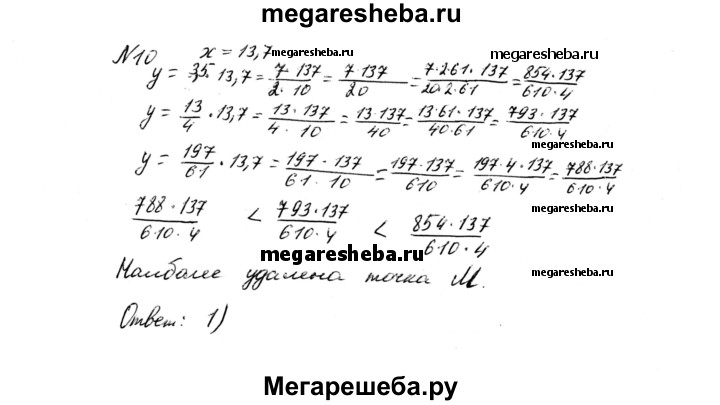 megaresheba.ru
№10 x = 13,7 megaresheba.ru megaresheba.ru
y = 3,5 · 13,7 = 7·137/2·10 = 7·137/20 = 7·2·61·137/20·2·61 = 854·137/610·4
y = 13/4 · 13,7 = 13·137/4·10 = 13·137/40 = 13·61·137/40·61 = 793·137/610·4
megaresheba.ru
y = 197/61 · 13,7 = 197·137/61·10 = 197·137/610 = 197·4·137/610·4 = 788·137/610·4
788·137/610·4 < 793·137/610·4 < 854·137/610·4
megaresheba.ru
megaresheba.ru
Наиболее удалена точка M. megaresheba.ru
Ответ: 1)
Мегарешеба.ру